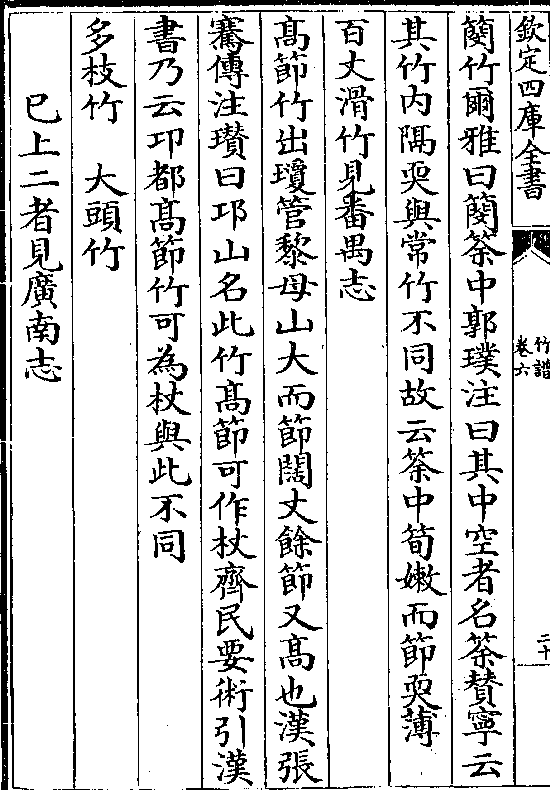 欽定四庫全書
竹譜
卷六
二十
䉂竹爾雅曰䉂筡中郭璞注曰其中空者名筡賛寧云
其竹内隔耎與常竹不同故云筡中筍嫩而節耎薄
百丈滑竹見番禺志
髙節竹出瓊管黎母山大而節闊丈餘節又髙也漢張
騫傳注瓚曰邛山名此竹髙節可作杖齊民要術引漢
書乃云邛都髙節竹可為杖與此不同
多枝竹　大頭竹
已上二者見廣南志